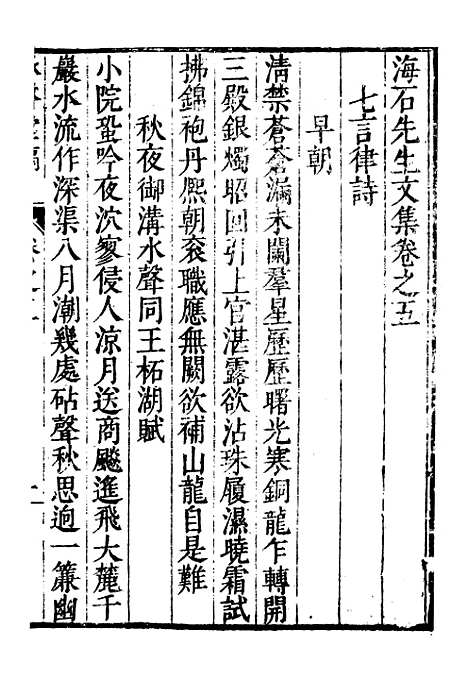 海石先生文集卷之五
七言律詩
早朝
清禁蒼蒼漏未闌羣星歷歷曙光寒銅龍乍轉開
三殿銀燭昭回引上官湛露欲沾珠履濕曉霜試
拂錦袍丹熙朝衮職應無闕欲補山龍自是難
秋夜御溝水聲同王柘湖賦
小院蛩吟夜泬寥侵人凉月送商飈遙飛大麓千
巖水流作深渠八月潮幾處砧聲秋思逈一簾幽